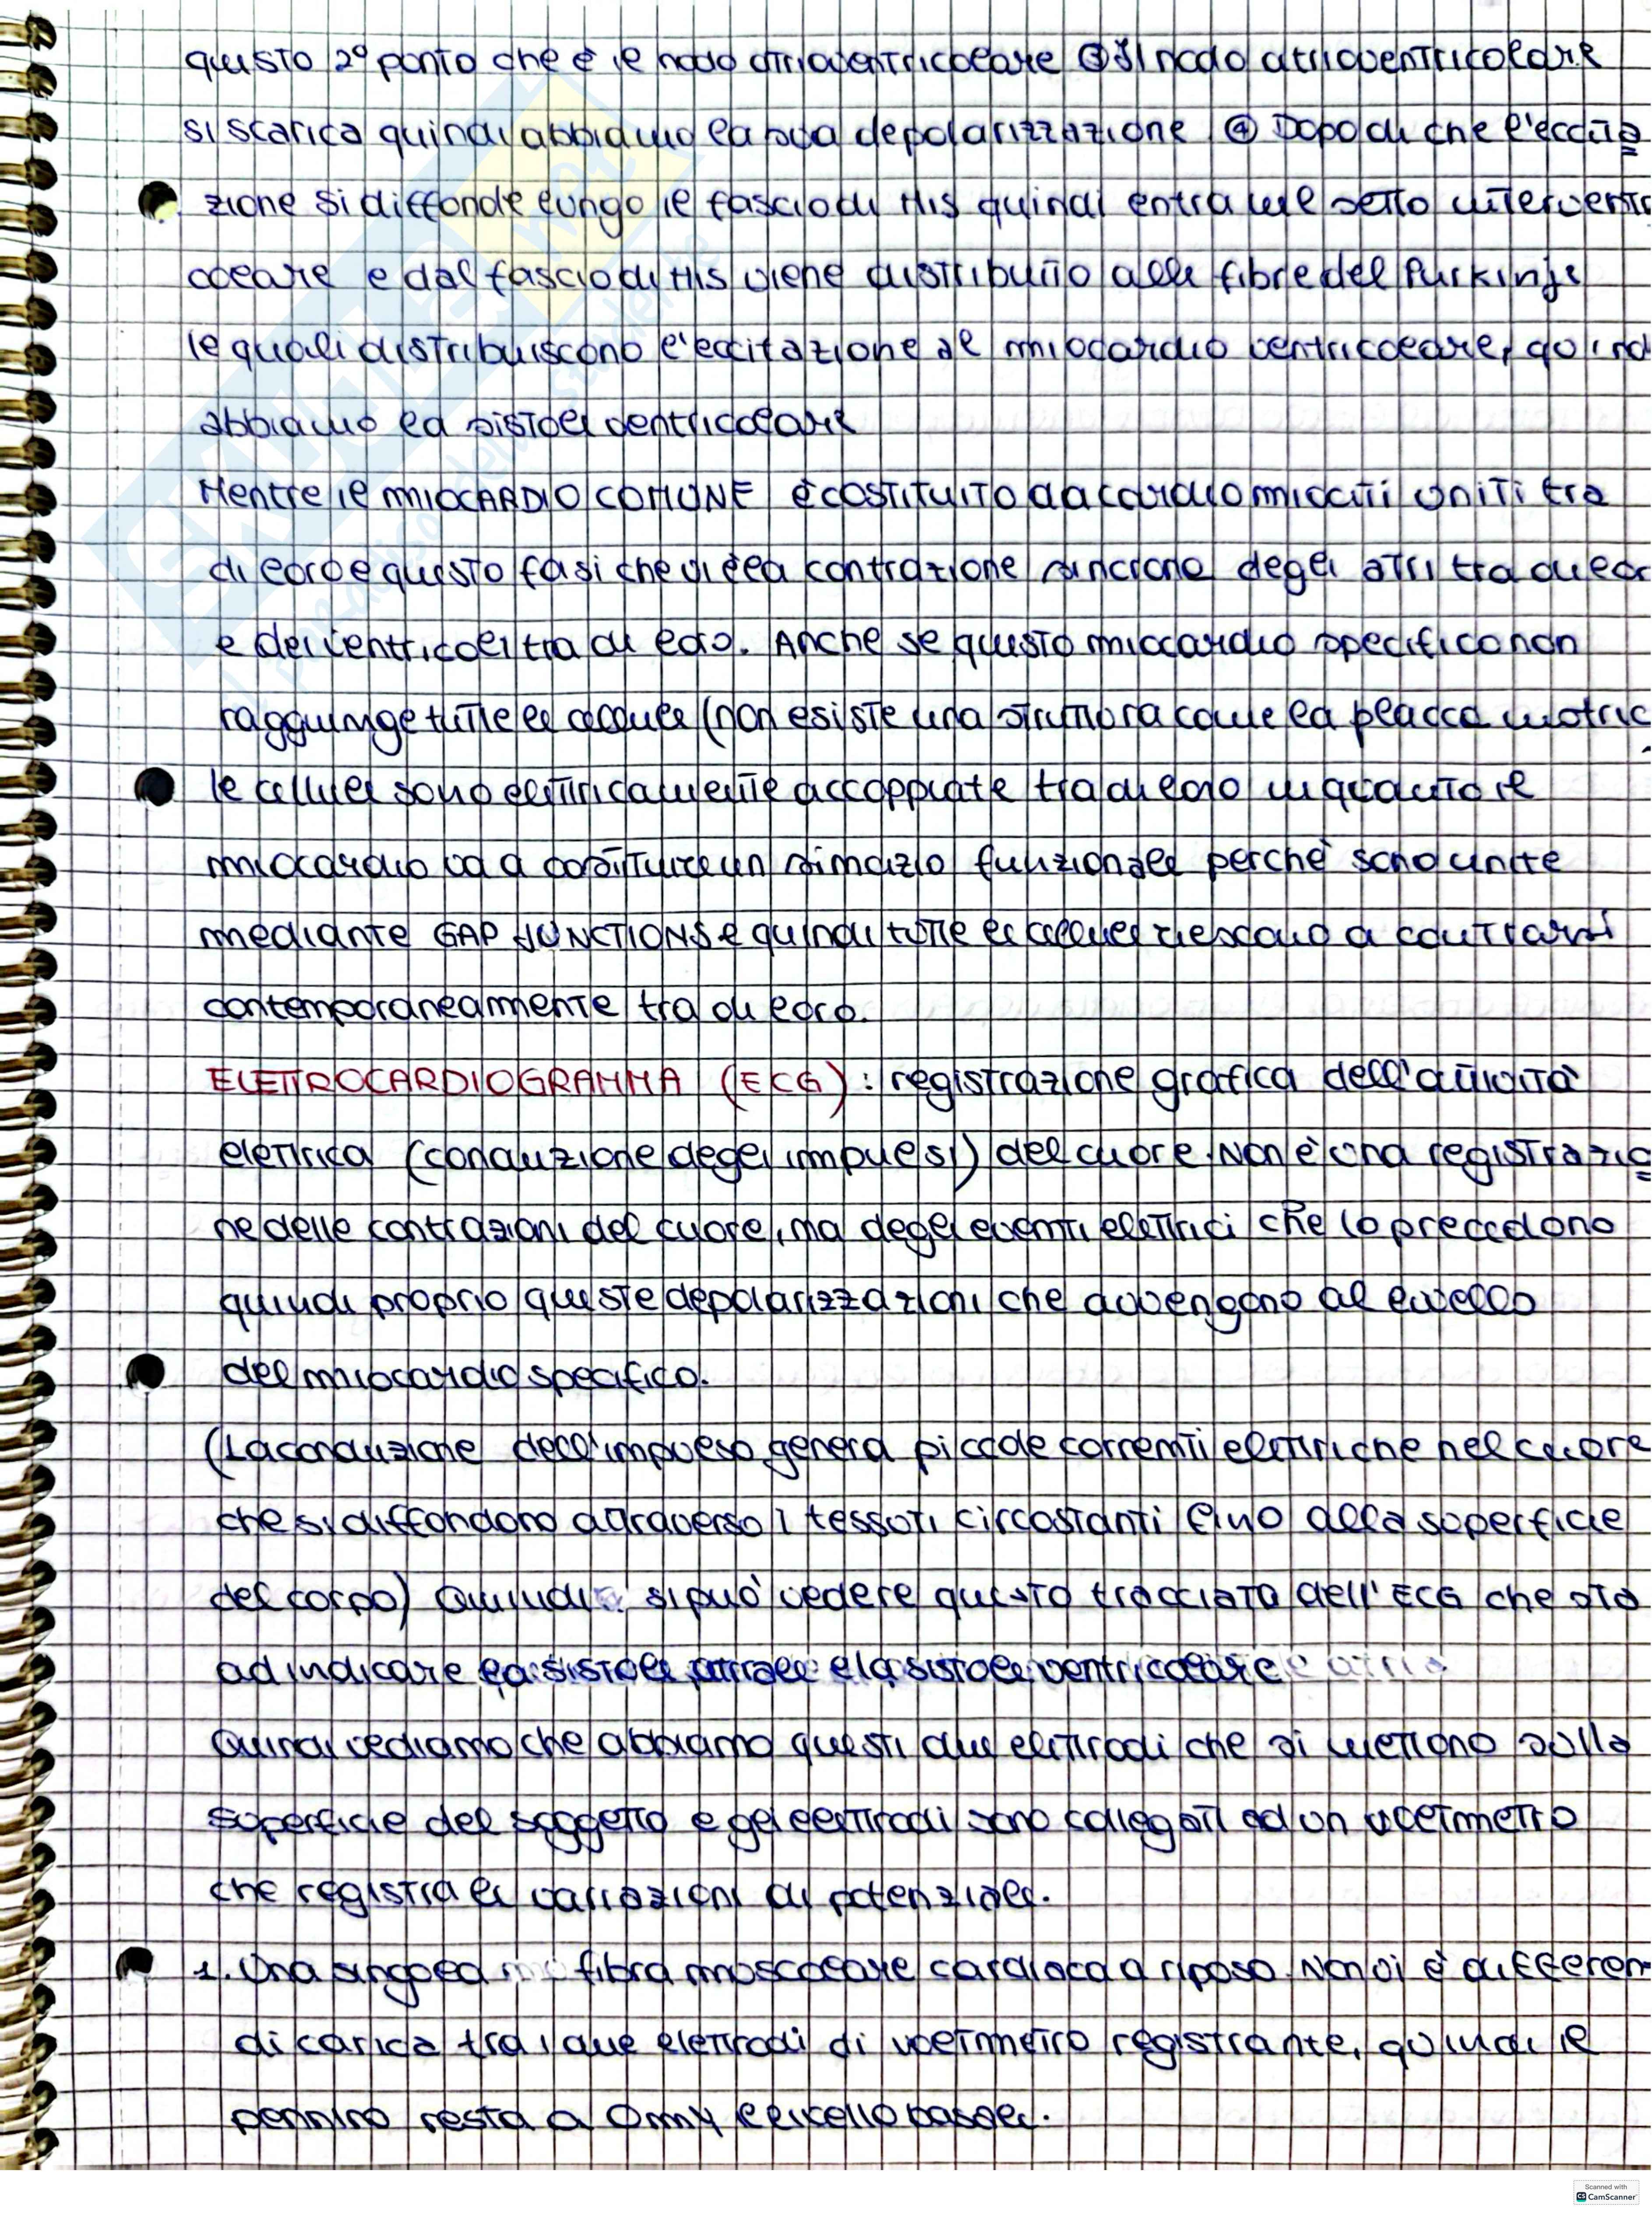 questo 2° punto che è il nodo atrioventricolare ③ Il nodo atrioventricolare
si scarica quindi abbiamo la sua depolarizzazione. ④ Dopo di che l'eccita
zione si diffonde lungo il fascio di His quindi entra nel setto interventri
colare e dal fascio di His viene distribuito alle fibre del Purkinje
le quali distribuiscono l'eccitazione al miocardio ventricolare, quind
abbiamo la sistole ventricolare
Mentre il MIOCARDIO COMUNE è COSTITUITO da cardiomiociti uniti tra
di loro e questo fa si che vi è la contrazione sincrona degli atri tra di lor
e dei ventricoli tra di loro. Anche se questo miocardio specifico non
raggiunge tutte le cellule (non esiste una struttura come la placca motric
le cellule sono elettricamente accoppiate tra di loro in quanto il
miocardio va a costituire un sincizio funzionale perchè sono unite
mediante GAP JUNCTIONS e quindi tutte le cellule riescono a contrarsi
contemporaneamente tra di loro.
ELETTROCARDIOGRAMMA (ECG): registrazione grafica dell'attività
elettrica (conduzione degli impulsi) del cuore. Non è una registrazio
ne delle contrazioni del cuore, ma degli eventi elettrici che lo precedono
quindi proprio queste depolarizzazioni che avvengono al livello
del miocardio specifico.
(La conduzione dell'impulso genera piccole correnti elettriche nel cuore
che si diffondono attraverso i tessuti circostanti fino alla superficie
del corpo) Quindi si può vedere questo tracciato dell'ECG che sta
ad indicare la sistole atriale e la sistole ventricolare
Quindi vediamo che abbiamo questi due elettrodi che si mettono sulla
superficie del soggetto e gli elettrodi sono collegati ad un voltmetro
che registra le variazioni di potenziale.
1. Una singola fibra muscolare cardiaca a riposo. Non vi è differen
di carica tra i due elettrodi di voltmetro registrante, quindi il
pennino resta a 0mV livello basale.
SKUOLA.net
il paradiso dello studente
Scanned with
CS CamScanner